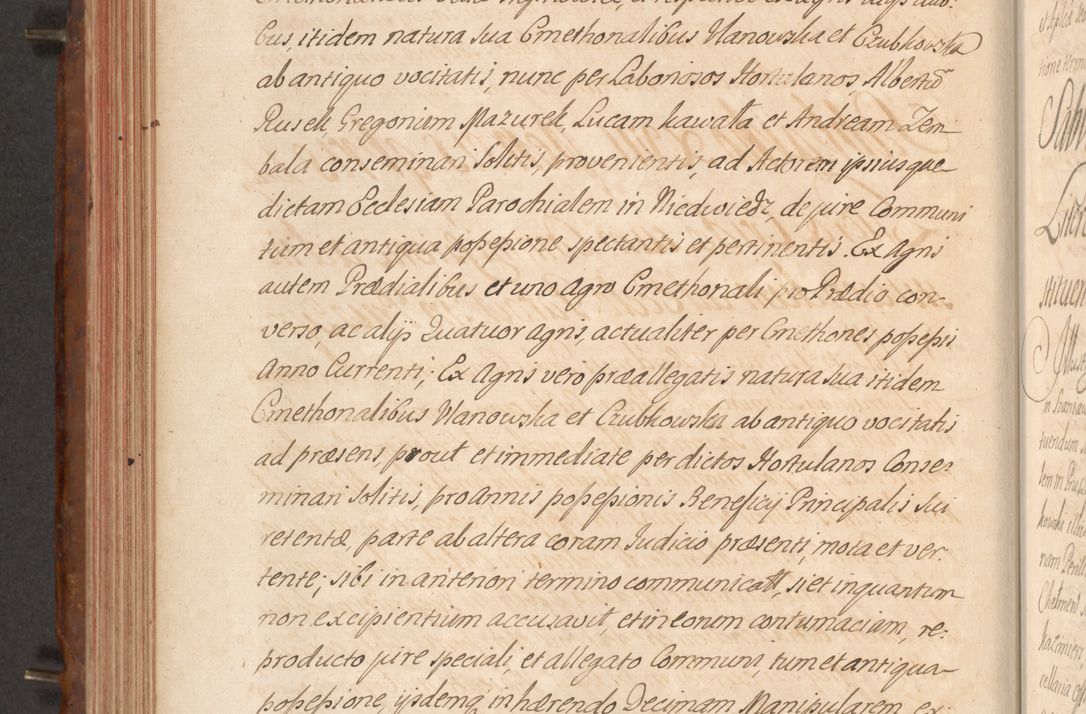 bus, itidem natura sua Cmethonalibus Ulanowska et Czubkowska
ab antiquo vocitatis, nunc per Laboriosos Hortulanos Albertũ
Rusek, Gregorium Mazurek, Lucam kawałta et Andream Zem
bala conseminari solitis, provenientis, ad Actorem ipsiusque
dictam Ecclesiam Parochialem in Niedwiedz, de jure Communi
tum et antiqua possessione spectantis et pertinentis. Ex Agris
autem Prædialibus et uno Agro Cmethonali pro Prædio con-
verso, ac alijs Quatuor Agris, actualiter per Cmethones possessis
Anno Currenti; Ex Agris vero præallegatis natura sua itidem
Cmethonalibus Ulanowska et Czubkowska ab antiquo vocitatis
ad præsens prout et immediate per dictos Hortulanos Conse-
minari solitis, pro Annis possessionis Beneficij Principalis sui
retentæ, parte ab altera coram Judicio præsenti, mota et ver-
tente; sibi in anteriori termino communicatæ, si et inquantum
non excipientium accusavit, et in eorum contumaciam, re-
producto jure speciali, et allegato Communi, tum et antiqua
possessione, ijsdemq inhærendo Decimam Manipularem, ex